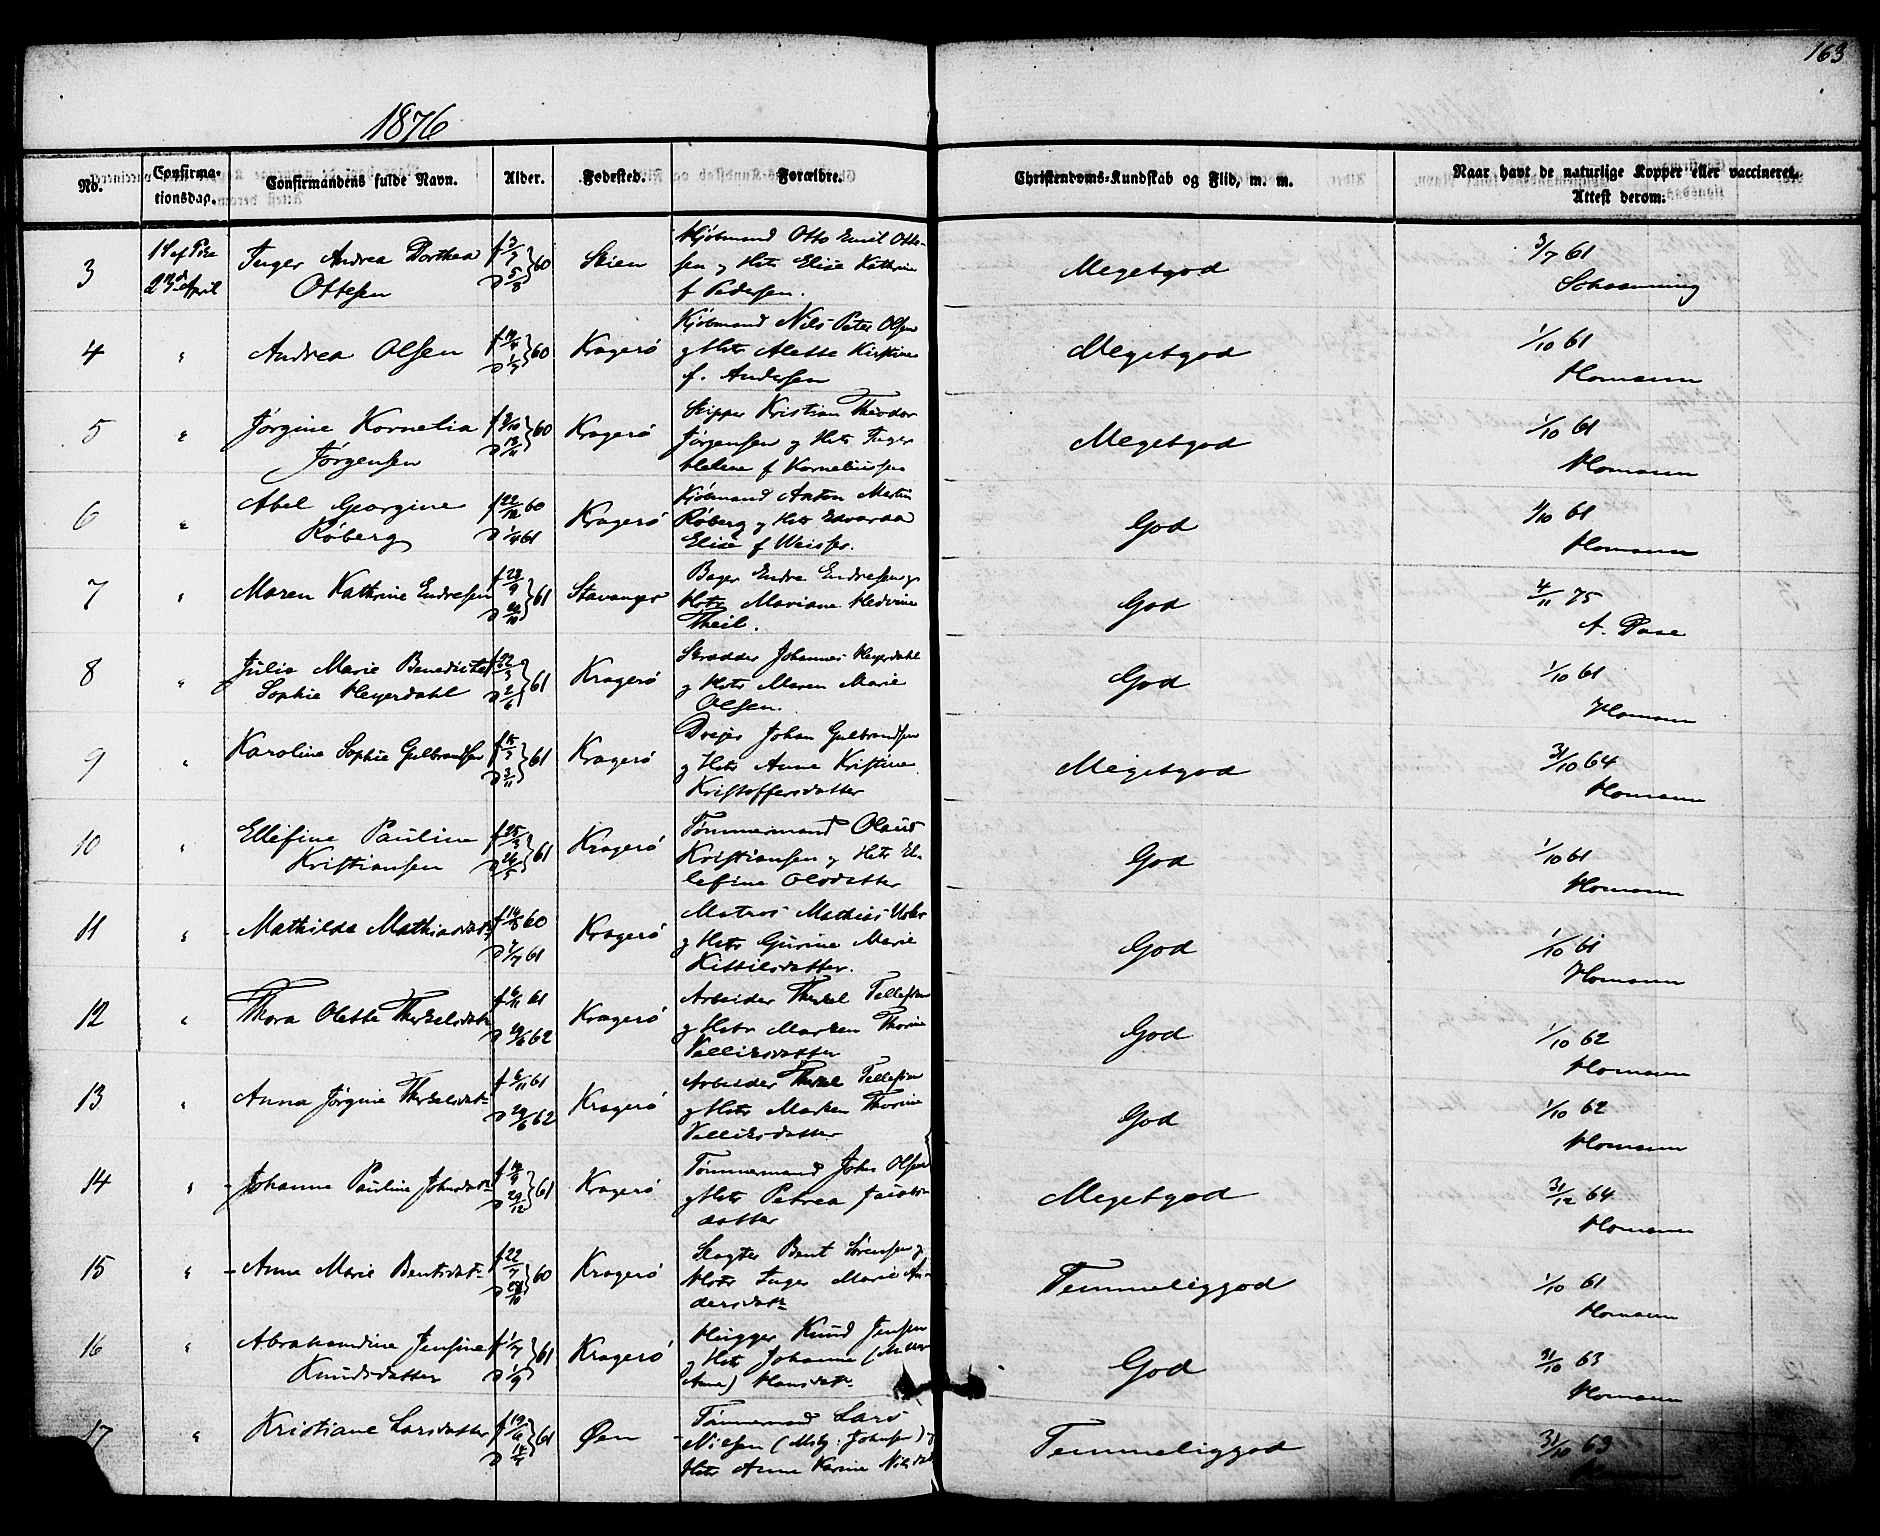 163
1876
No.
Confirma-
tionsdag.
Confirmandens fulde Navn.
Alder.
Fødested.
Forældre.
Christendoms-Kundskab og Flid, m. m.
Naar havt de naturlige Kopper eller vaccineret.
Attest derom.
3
23 April
Inger Andrea Dorthea
Ottesen
f 3/7 60
D 5/8
Skien
Kjøbmand Otto Emil Otte-
sen og Hstr Elise Kathrine
f Pedersen.
Megetgod
3/7 61
4
"
Andrea Olsen
60
Kragerø
Kjøbmand Nils Peter Olsen
og Hstr Alette Kirstine
f. Andersen
Megetgod
1/10 61
Homann
5
"
Jørgine Kornelia
Jørgensen
60
Kragerø
Skipper Kristian Theodor
Jørgensen og Hstr Inger
Helene f Korneliussen
Megetgod
1/10 61
Homann
6
"
Abel Georgine
Røberg
f 22/12 60
D 1/4 61
Kragerø
Kjøbmand Anton Martin
Røberg og Hstr Edvarda
Elise f Weisser.
God
1/10 61
Homann
7
"
Maren Kathrine Endresen
f 28/9 61
Stavanger
Bager Endre Endresen og
Hstr Mariane Hedvine
Theil.
God
4/11 75
A. Dase
8
"
Julie Marie Benedicte
Sophie Heyerdahl
f 22/3 61
D 2/6
Kragerø
Skrædder Johannes Heyerdahl
og Hstr Maren Marie
Olsen.
God
1/10 61
Homann
9
"
Karoline Sophie Gulbrandsen
61
Kragerø
Drejer Johan Gulbrandsen
og Hstr Anne Kristine
Kristoffersdatter
Megetgod
31/10 64
Homann
10
"
Ellefine Pauline
Kristiansen
f 25/3 61
D 26/5
Kragerø
Tømmermand Olaus
Kristiansen og Hstr El-
lefine Olsdatter
God
1/10 61
Homann
11
"
Mathilde Mathiasdatr
60
D 7/7 61
Kragerø
Matros Mathias
og Hstr Gurine Marie
Kittilsdatter.
God
1/10 61
Homann
12
"
Thora Olette Therkelsdatr
f 6/11 61
D 29/6 62
Kragerø
Arbeider Therkel Tellefsen
og Hstr Maren Thorine
Vetlliksdatter
God
1/10 62
Homann
13
"
Anna Jørgine Therkelsdatr
f 6/11 61
D 29/6 62
Kragerø
Arbeider Therkel Tellefsen
og Hstr Maren Thorine
Vetlliksdatter
God
1/10 62
Homann
14
"
Johanne Pauline Johnsdatr
61
D 29/12
Kragerø
Tømmermand John Olsen
og Hstr Petrea Jacobs
datter
Megetgod
31/12 64
Homann
15
"
Anne Marie Bentsdatr
f 22/7 60
D 28/10
Kragerø
Slagter Bent Sørensen og
Hstr Inger Marie An-
dersdatr
Temmeliggod
1/10 61
Homann
16
"
Abrahamdine Jensine
Knudsdatter
f 1/7 61
D 1/9
Kragerø
Knud Jensen
og Hstr Johanne (Maren
Anne) Hansdatr
God
31/10 63
Homann
17
"
Kristiane Larsdatter
61
Øen
Tømmermand Lars
Nilsen
Hstr Anne Karine Nilsdat
Temmeliggod
31/10 63
Homann